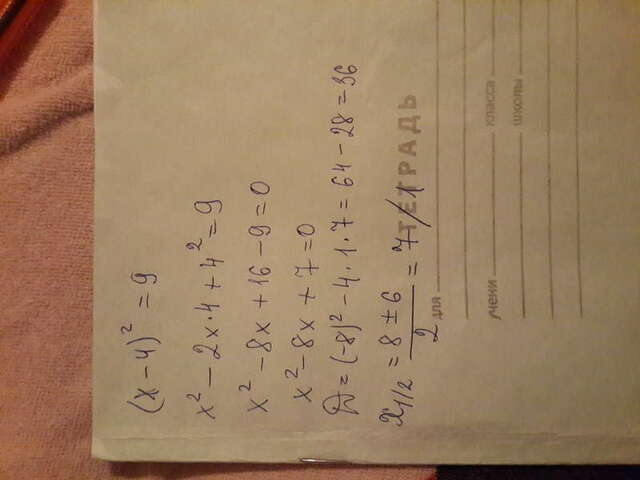 (x - 4)² = 9
x² - 2x·4 + 4² = 9
x² - 8x + 16 - 9 = 0
x² - 8x + 7 = 0
D = (-8)² - 4·1·7 = 64 - 28 = 36
x1/2 = (8 ± 6)/2 = 7/1
ТЕТРАДЬ
для
учени класса
школы